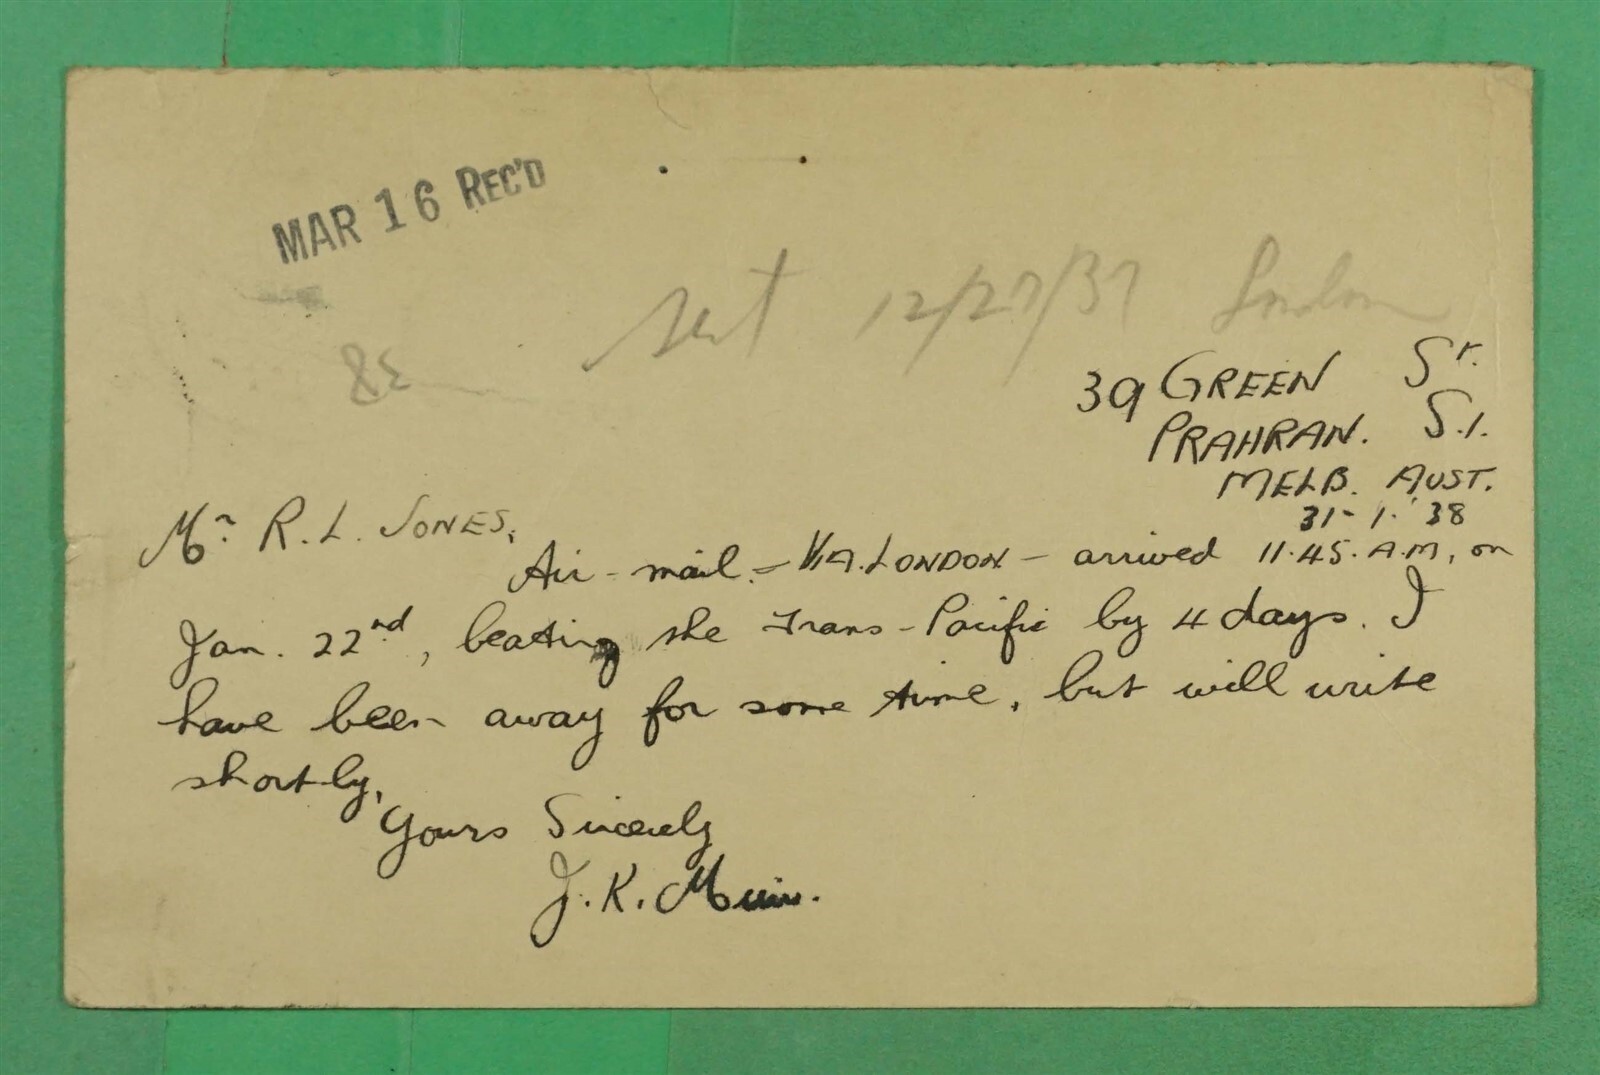 MAR 16 REC'D
sent 12/27/37 London
39 GREEN St.
PRAHRAN. S.1.
MELB. AUST.
31-1-'38
Mr. R. L. JONES,
Air-mail - VIA. LONDON - arrived 11.45. A.M, on
Jan. 22nd, beating the Trans-Pacific by 4 days. I
have been away for some time, but will write
shortly,
Yours Sincerely
J. K. Muir.